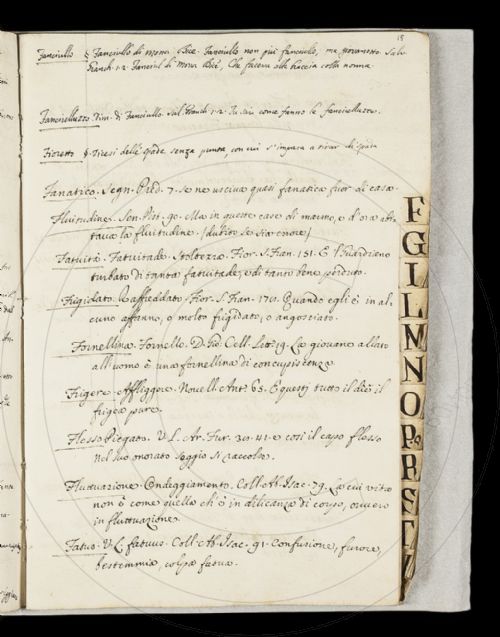 18
Fanciullo § Fanciullo di Monna Bice. Fanciullo non più fanciullo, ma giovanotto. Salv.
Granch. 1.2. Fanciul di Mona Bice, Che faceva alle braccia colla nonna.
Fanciullezzo. Dim. di Fanciullo. Sal. Granch. 1.2. Tu sai come fanno le
Fioretti § Diresi delle spade senza punta, con cui s'impara a tirar di spada
Fanatico. Segn. Pred. 7. se ne usciva quasi fanatico fuor di casa
Fluitudine. Sen. Pist. 90. Ma in queste case di marmo, e d'oro abi-
tava la fluitudine. (dubito se sia errore)
Fatuità. Fatuitade. Stoltezza. Fior. S. Fran. 151. E 'l Guardiano
turbato di tanta fatuitade, e di tanto bene perduto.
Frigidato. Raffreddato. Fior. S. Fran. 170. Quando egli è in al-
cuno affanno, o molto frigidato, o angosciato.
Fornellina. Fornello. D. Gio. Cell. Lett. 19. La giovane allato
all'uomo è una fornellina di concupiscenza
Frigere. Affliggere. Novell. Ant. 65. E questi tutto il die il
frigea pure.
Flesso. Piegato. V. L. Ar. Fur. 30. 41. e così il capo flesso
Nel suo onorato seggio si raccolse.
Fluttuazione. Ondeggiamento. Coll. Ab. Isac. 79. La cui vita
non è come quella ch'è in dilicanza di corpo, ovvero
in fluttuazione.
Fatuo. V. L. fatuus. Coll. Ab. Isac. 91. Confusione, furore,
bestemmia, colpa fatua.
F
G
I
L
M
N
O
P.Q
R
S
T
V